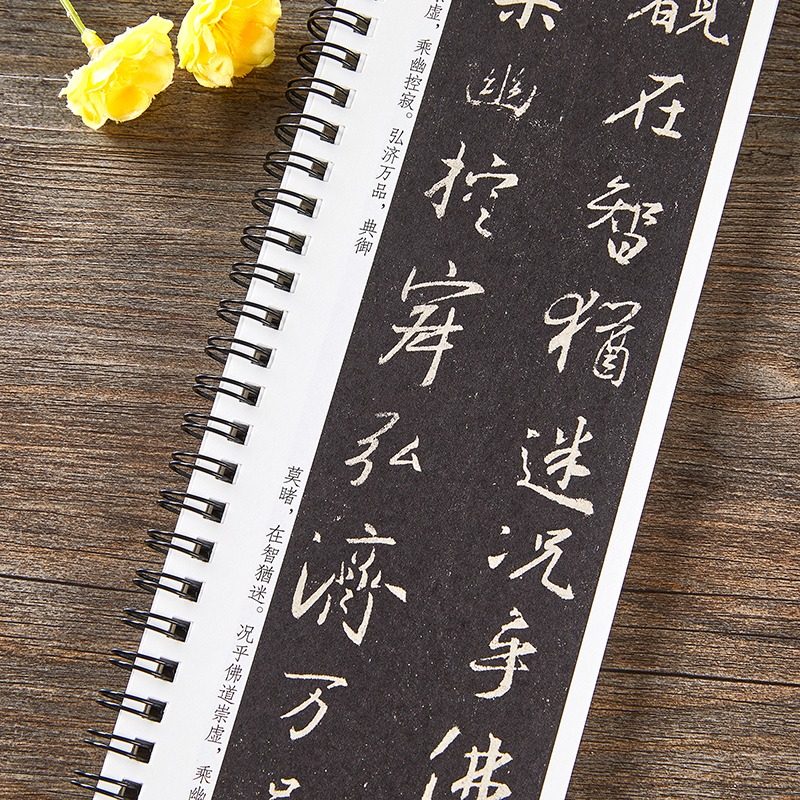 覩在智猶迷况乎佛
乘幽控寂弘濟万品
虚，乘幽控寂。弘济万品，典御
莫睹，在智猶迷。况乎佛道崇虚，乘幽